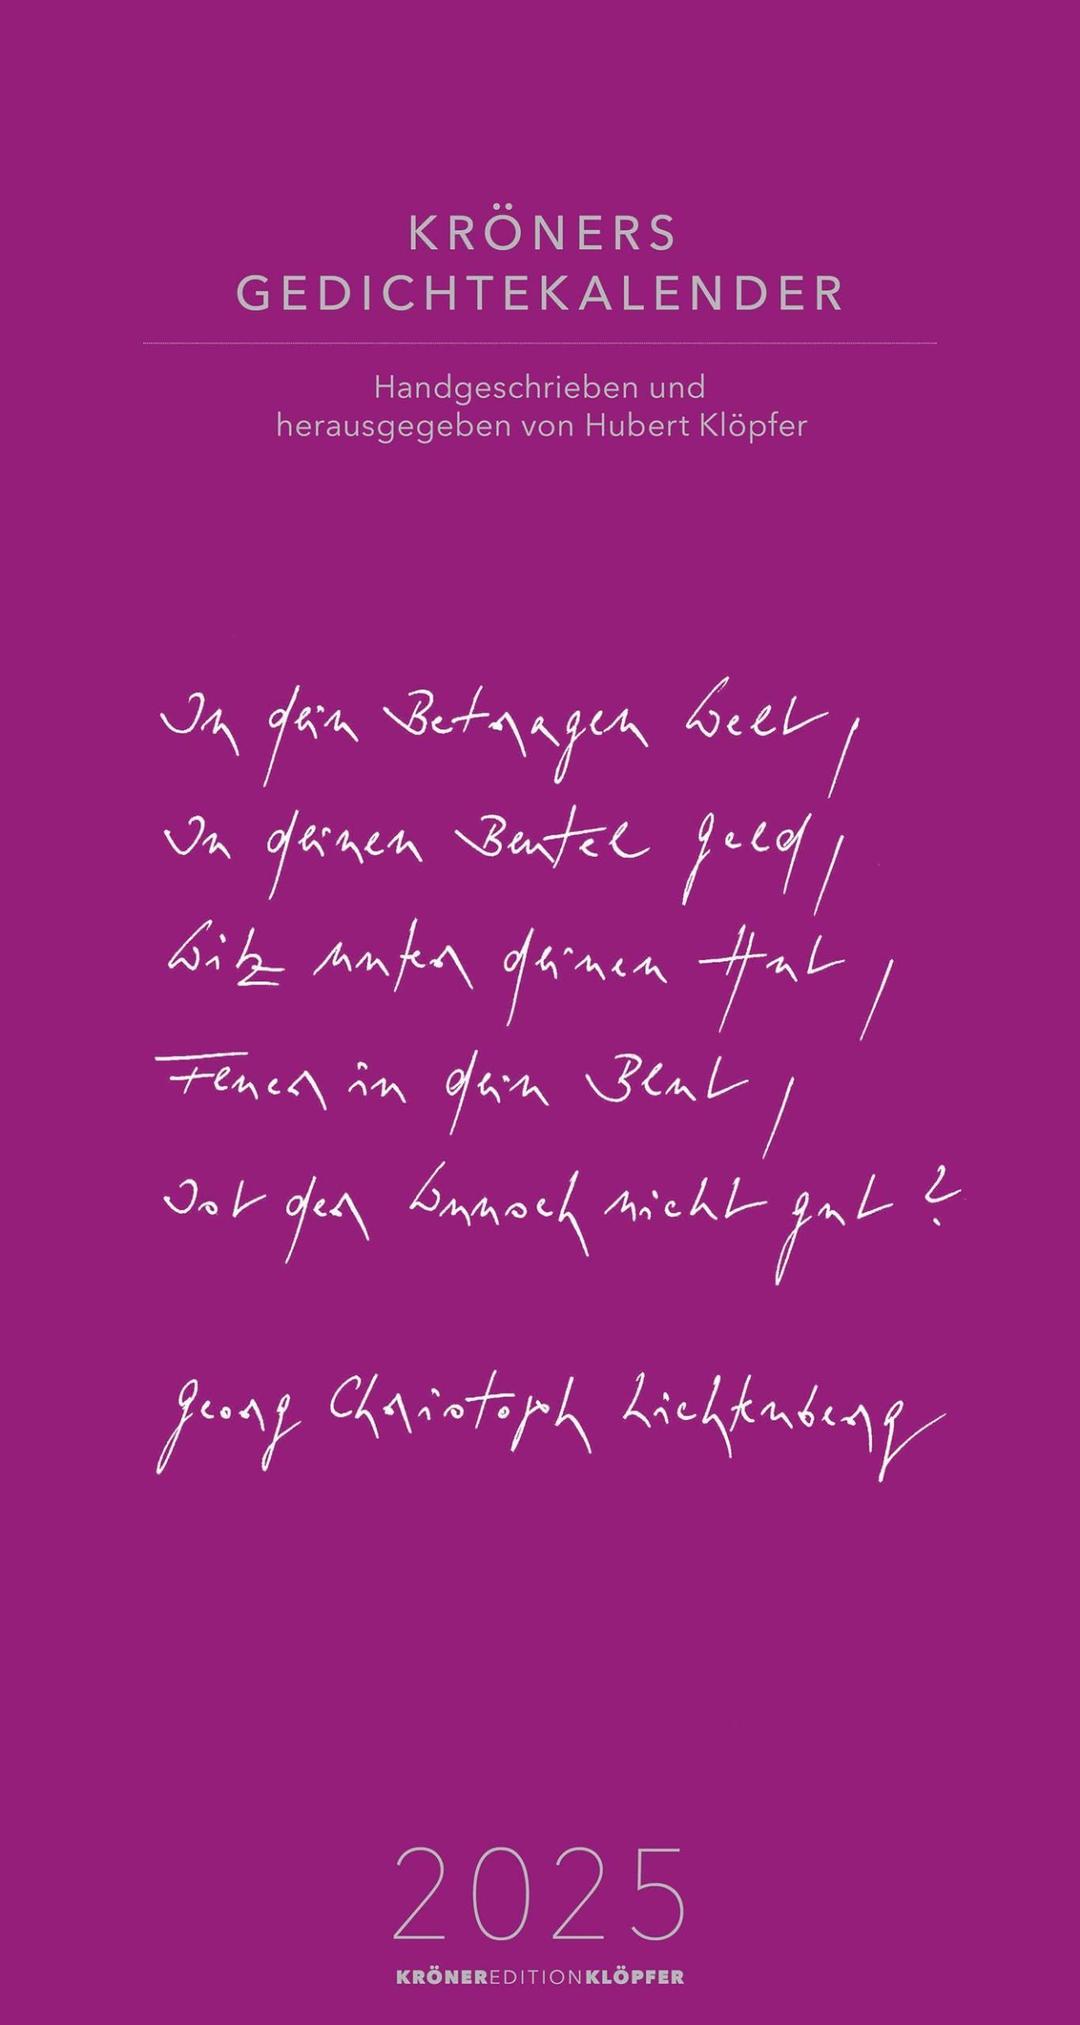 KRÖNERS
GEDICHTEKALENDER
Handgeschrieben und
herausgegeben von Hubert Klöpfer
In dein Betragen Welt,
In deinen Beutel Geld,
Witz unter deinen Hut,
Feuer in dein Blut,
Ist der Wunsch nicht gut?
Georg Christoph Lichtenberg
2025
KRÖNEREDITIONKLÖPFER